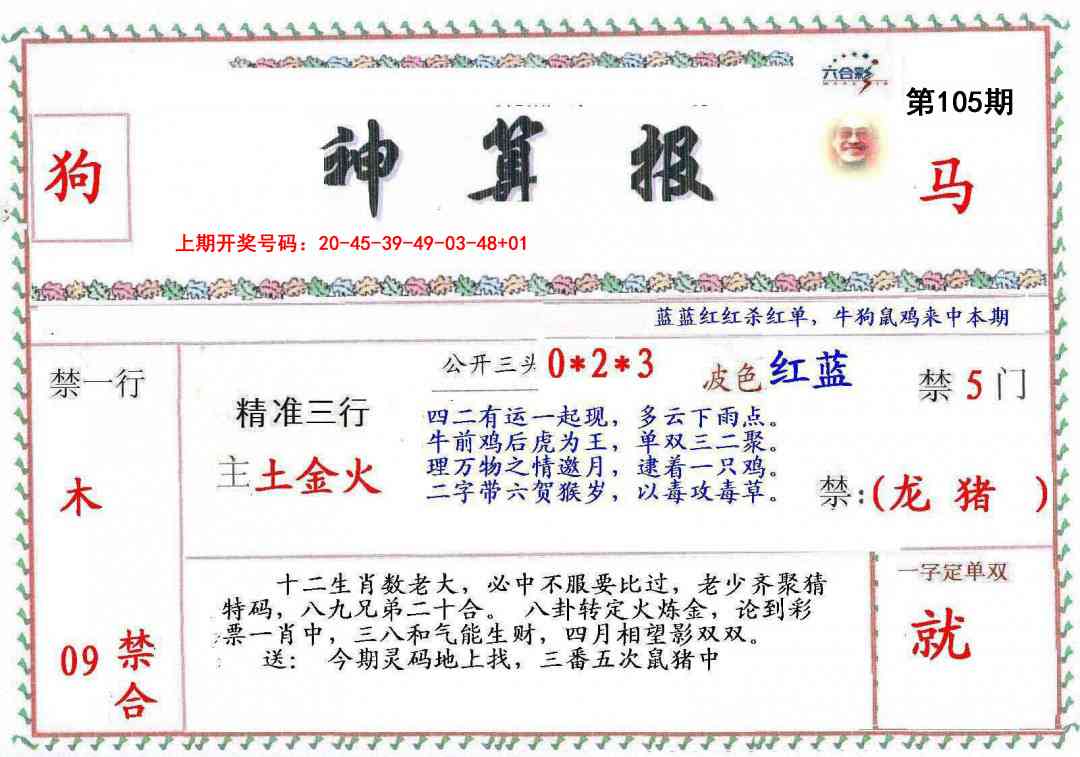 六合彩
第105期
狗
神算报
马
上期开奖号码：20-45-39-49-03-48+01
蓝蓝红红杀红单，牛狗鼠鸡来中本期
禁一行
公开三头
0*2*3
波色
红蓝
禁5门
精准三行
四二有运一起现，多云下雨点。
牛前鸡后虎为王，单双三二聚。
理万物之情邀月，逮着一只鸡。
二字带六贺猴岁，以毒攻毒草。
主土金火
木
禁:(龙猪 )
一字定单双
十二生肖数老大，必中不服要比过，老少齐聚猜
特码，八九兄弟二十合。 八卦转定火炼金，论到彩
票一肖中，三八和气能生财，四月相望影双双。
送： 今期灵码地上找，三番五次鼠猪中
就
09
禁
合